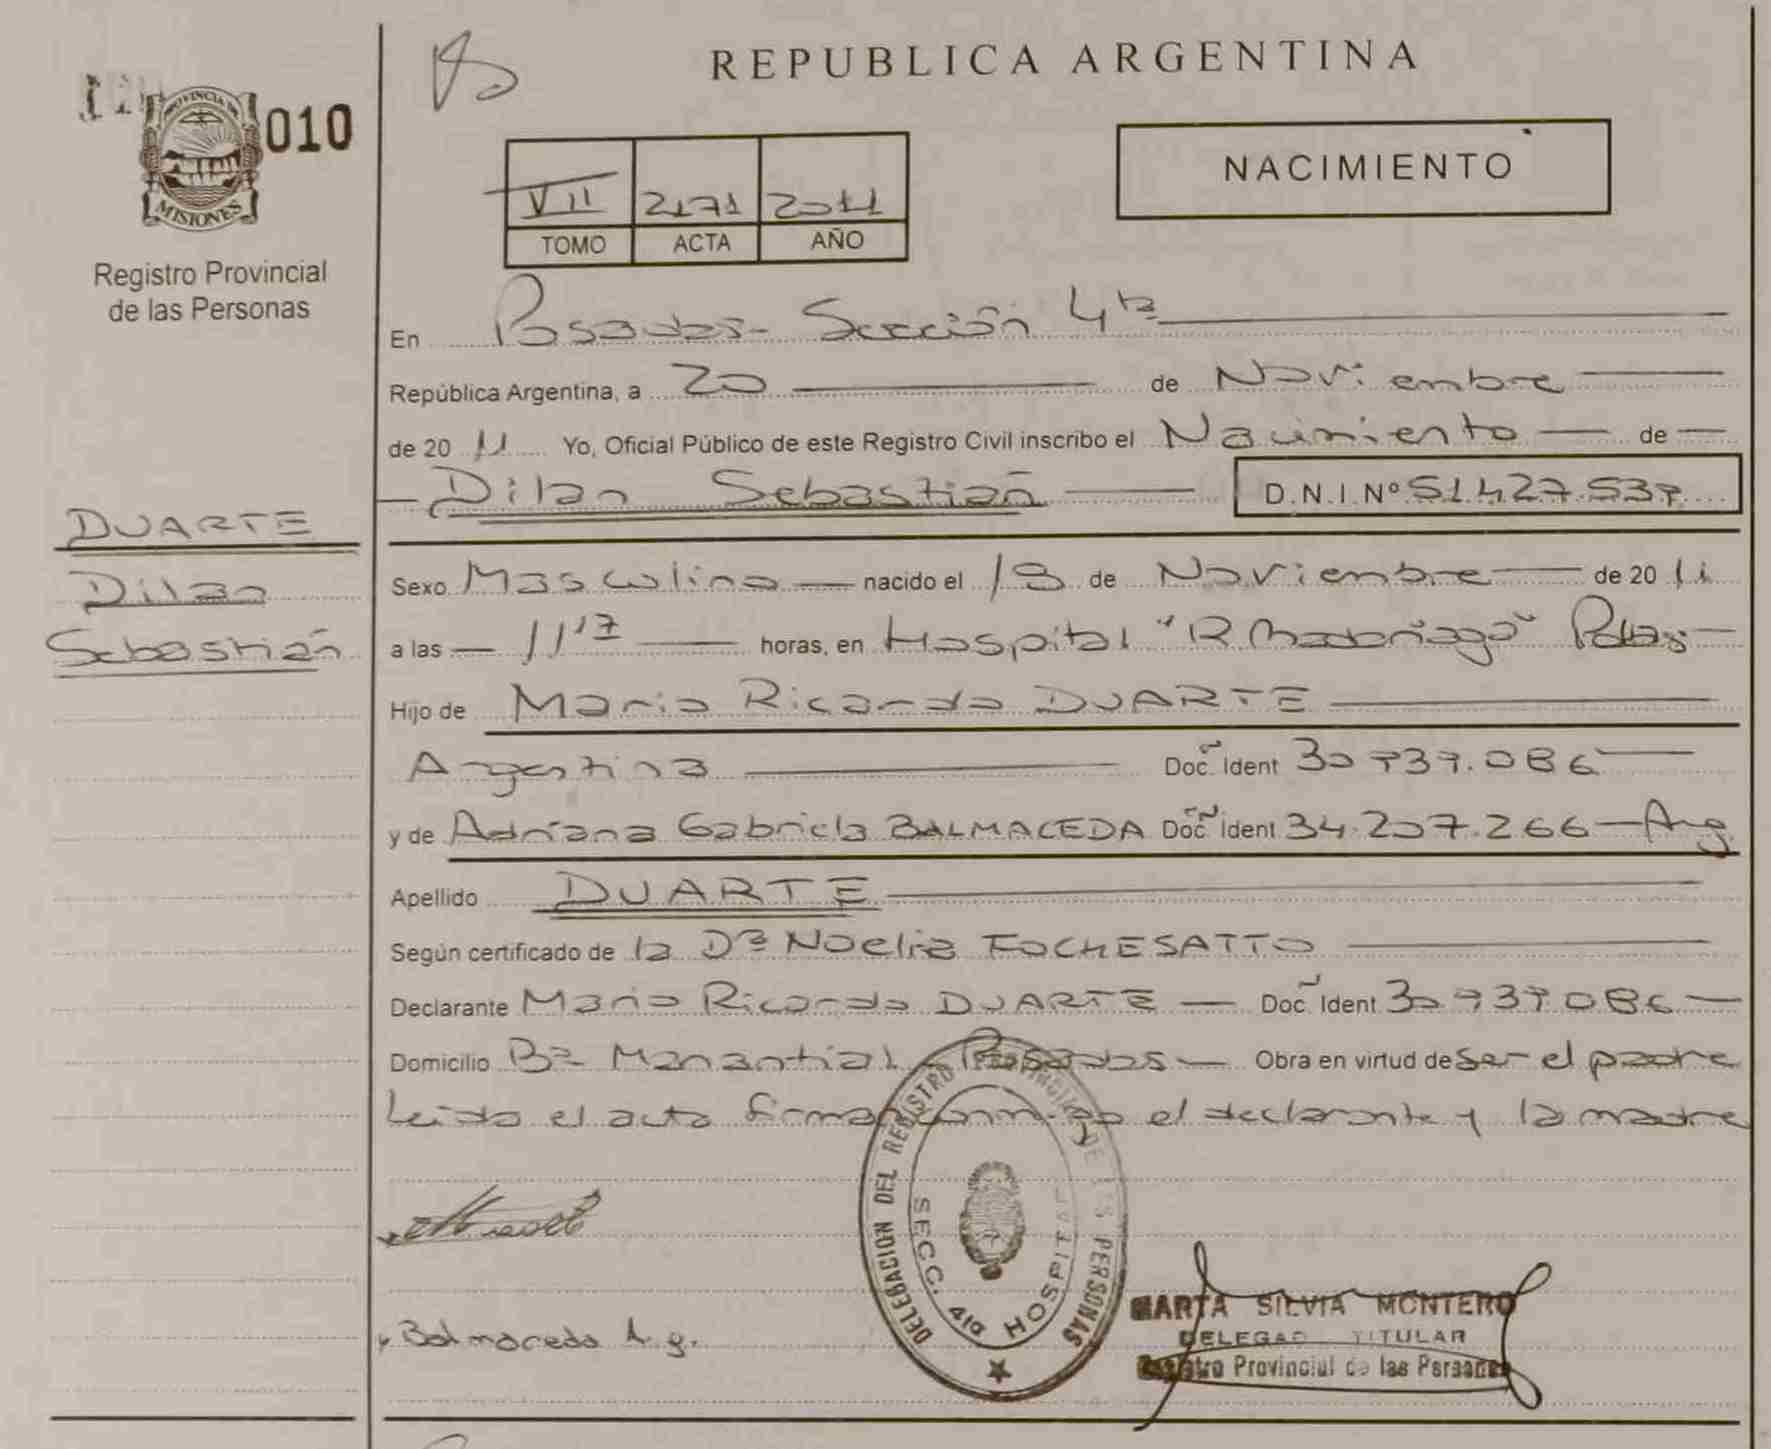 REPUBLICA ARGENTINA
010
PROVINCIA DE
MISIONES
Registro Provincial
de las Personas
NACIMIENTO
VII 2171 2011
TOMO ACTA AÑO
En Posadas- Sección 4ta
República Argentina, a 20 de Noviembre
de 20 11 Yo, Oficial Público de este Registro Civil inscribo el Nacimiento de
Dilan Sebastián D.N.I.Nº 51.427.537
DUARTE
Dilan
Sebastián
Sexo Masculino nacido el 19 de Noviembre de 20 11
a las 11 17 horas, en Hospital "R Madariaga" Pdas
Hijo de Mario Ricardo DUARTE
Argentina Doc. Ident 30.939.086
y de Adriana Gabriela BALMACEDA Doc. Ident 34.207.266 Arg.
Apellido DUARTE
Según certificado de la Dra Noelia FOCHESATTO
Declarante Mario Ricardo DUARTE Doc. Ident 30.939.086
Domicilio Bº Manantial - Posadas Obra en virtud de ser el padre
Leida el acta firman conmigo el declarante y la madre
DELEGACION DEL REGISTRO PROVINCIAL DE LAS PERSONAS
SECC. 4ta HOSPITAL
Balmaceda A.g.
MARTA SILVIA MONTERO
DELEGADO TITULAR
Registro Provincial de las Personas